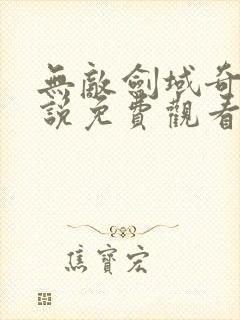 無敵劍域奇
說免費觀看
焦寶宏